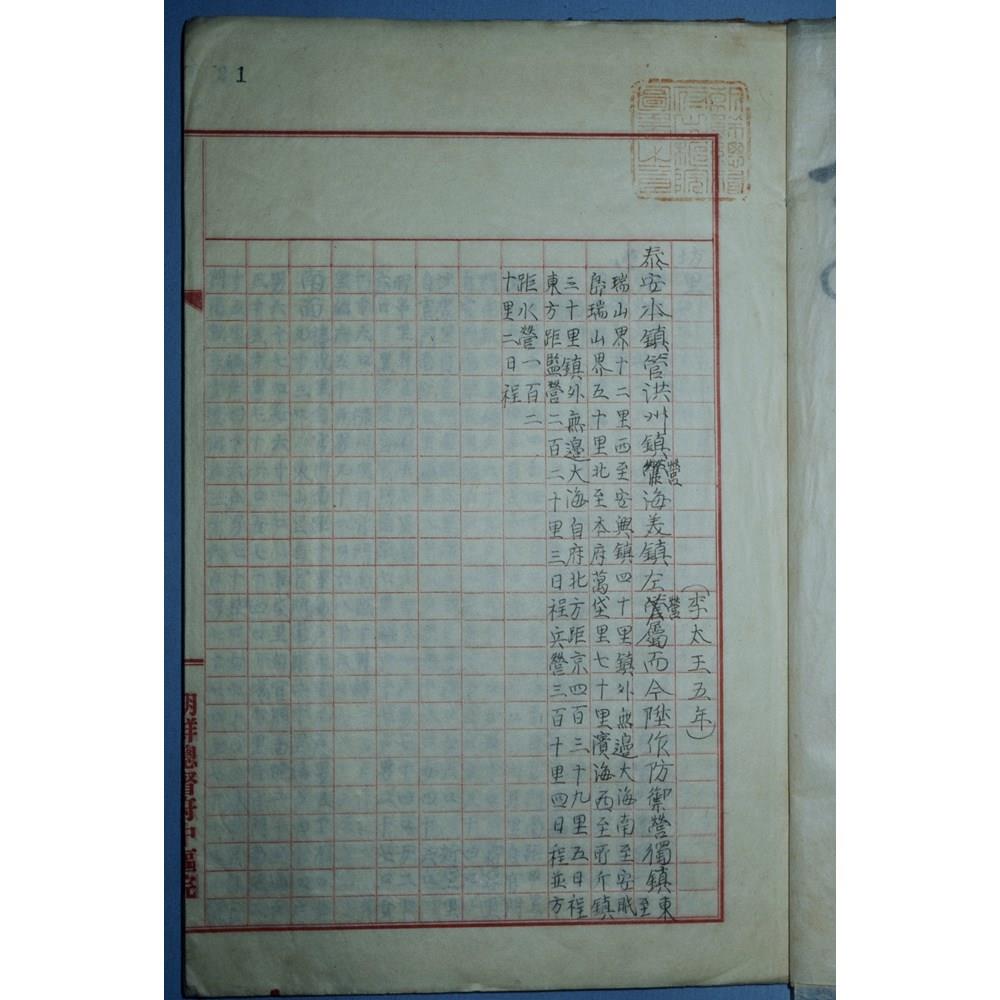 21
朝鮮總督府中樞院圖書之章
(李太王五年)
泰安水鎮管洪州鎮營海美鎮左營屬而今陞作防禦營獨鎮東至
瑞山界十二里西至安興鎮四十里鎮外無邊大海南至安眠
島瑞山界五十里北至本府萬垈里七十里濱海西至所斤鎮
三十里鎮外無邊大海自府北方距京四百三十九里五日程
東方距監營二百二十里三日程兵營三百十里四日程並方
距水營一百二
十里二日程
朝鮮總督府中樞院